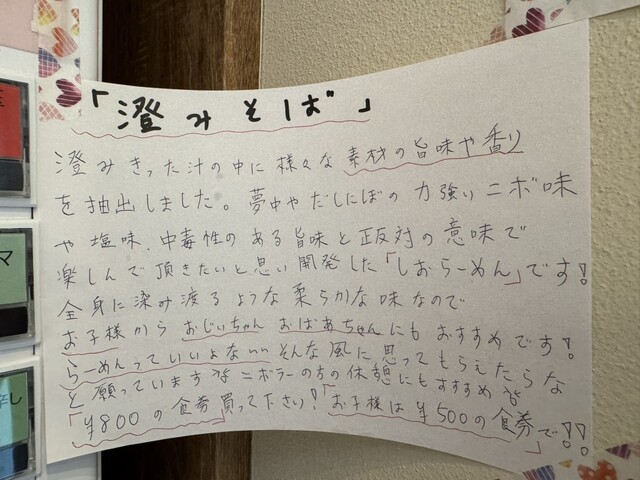 「澄みそば」
澄みきった汁の中に様々な素材の旨味や香り
を抽出しました。夢中やだしにぼの力強いニボ味
や塩味、中毒性のある旨味と正反対の意味で
楽しんで頂きたいと思い開発した「しおらーめん」です!
全身に染み渡るような柔らかな味なので
お子様からおじいちゃんおばあちゃんにもおすすめです!
らーめんっていいよないいそんな風に思ってもらえたらな
と願っています ニボラーの方の休憩にもすすめ
「¥800の食券」買って下さい!「お子様は¥500の食券」で!!
マ
辛し